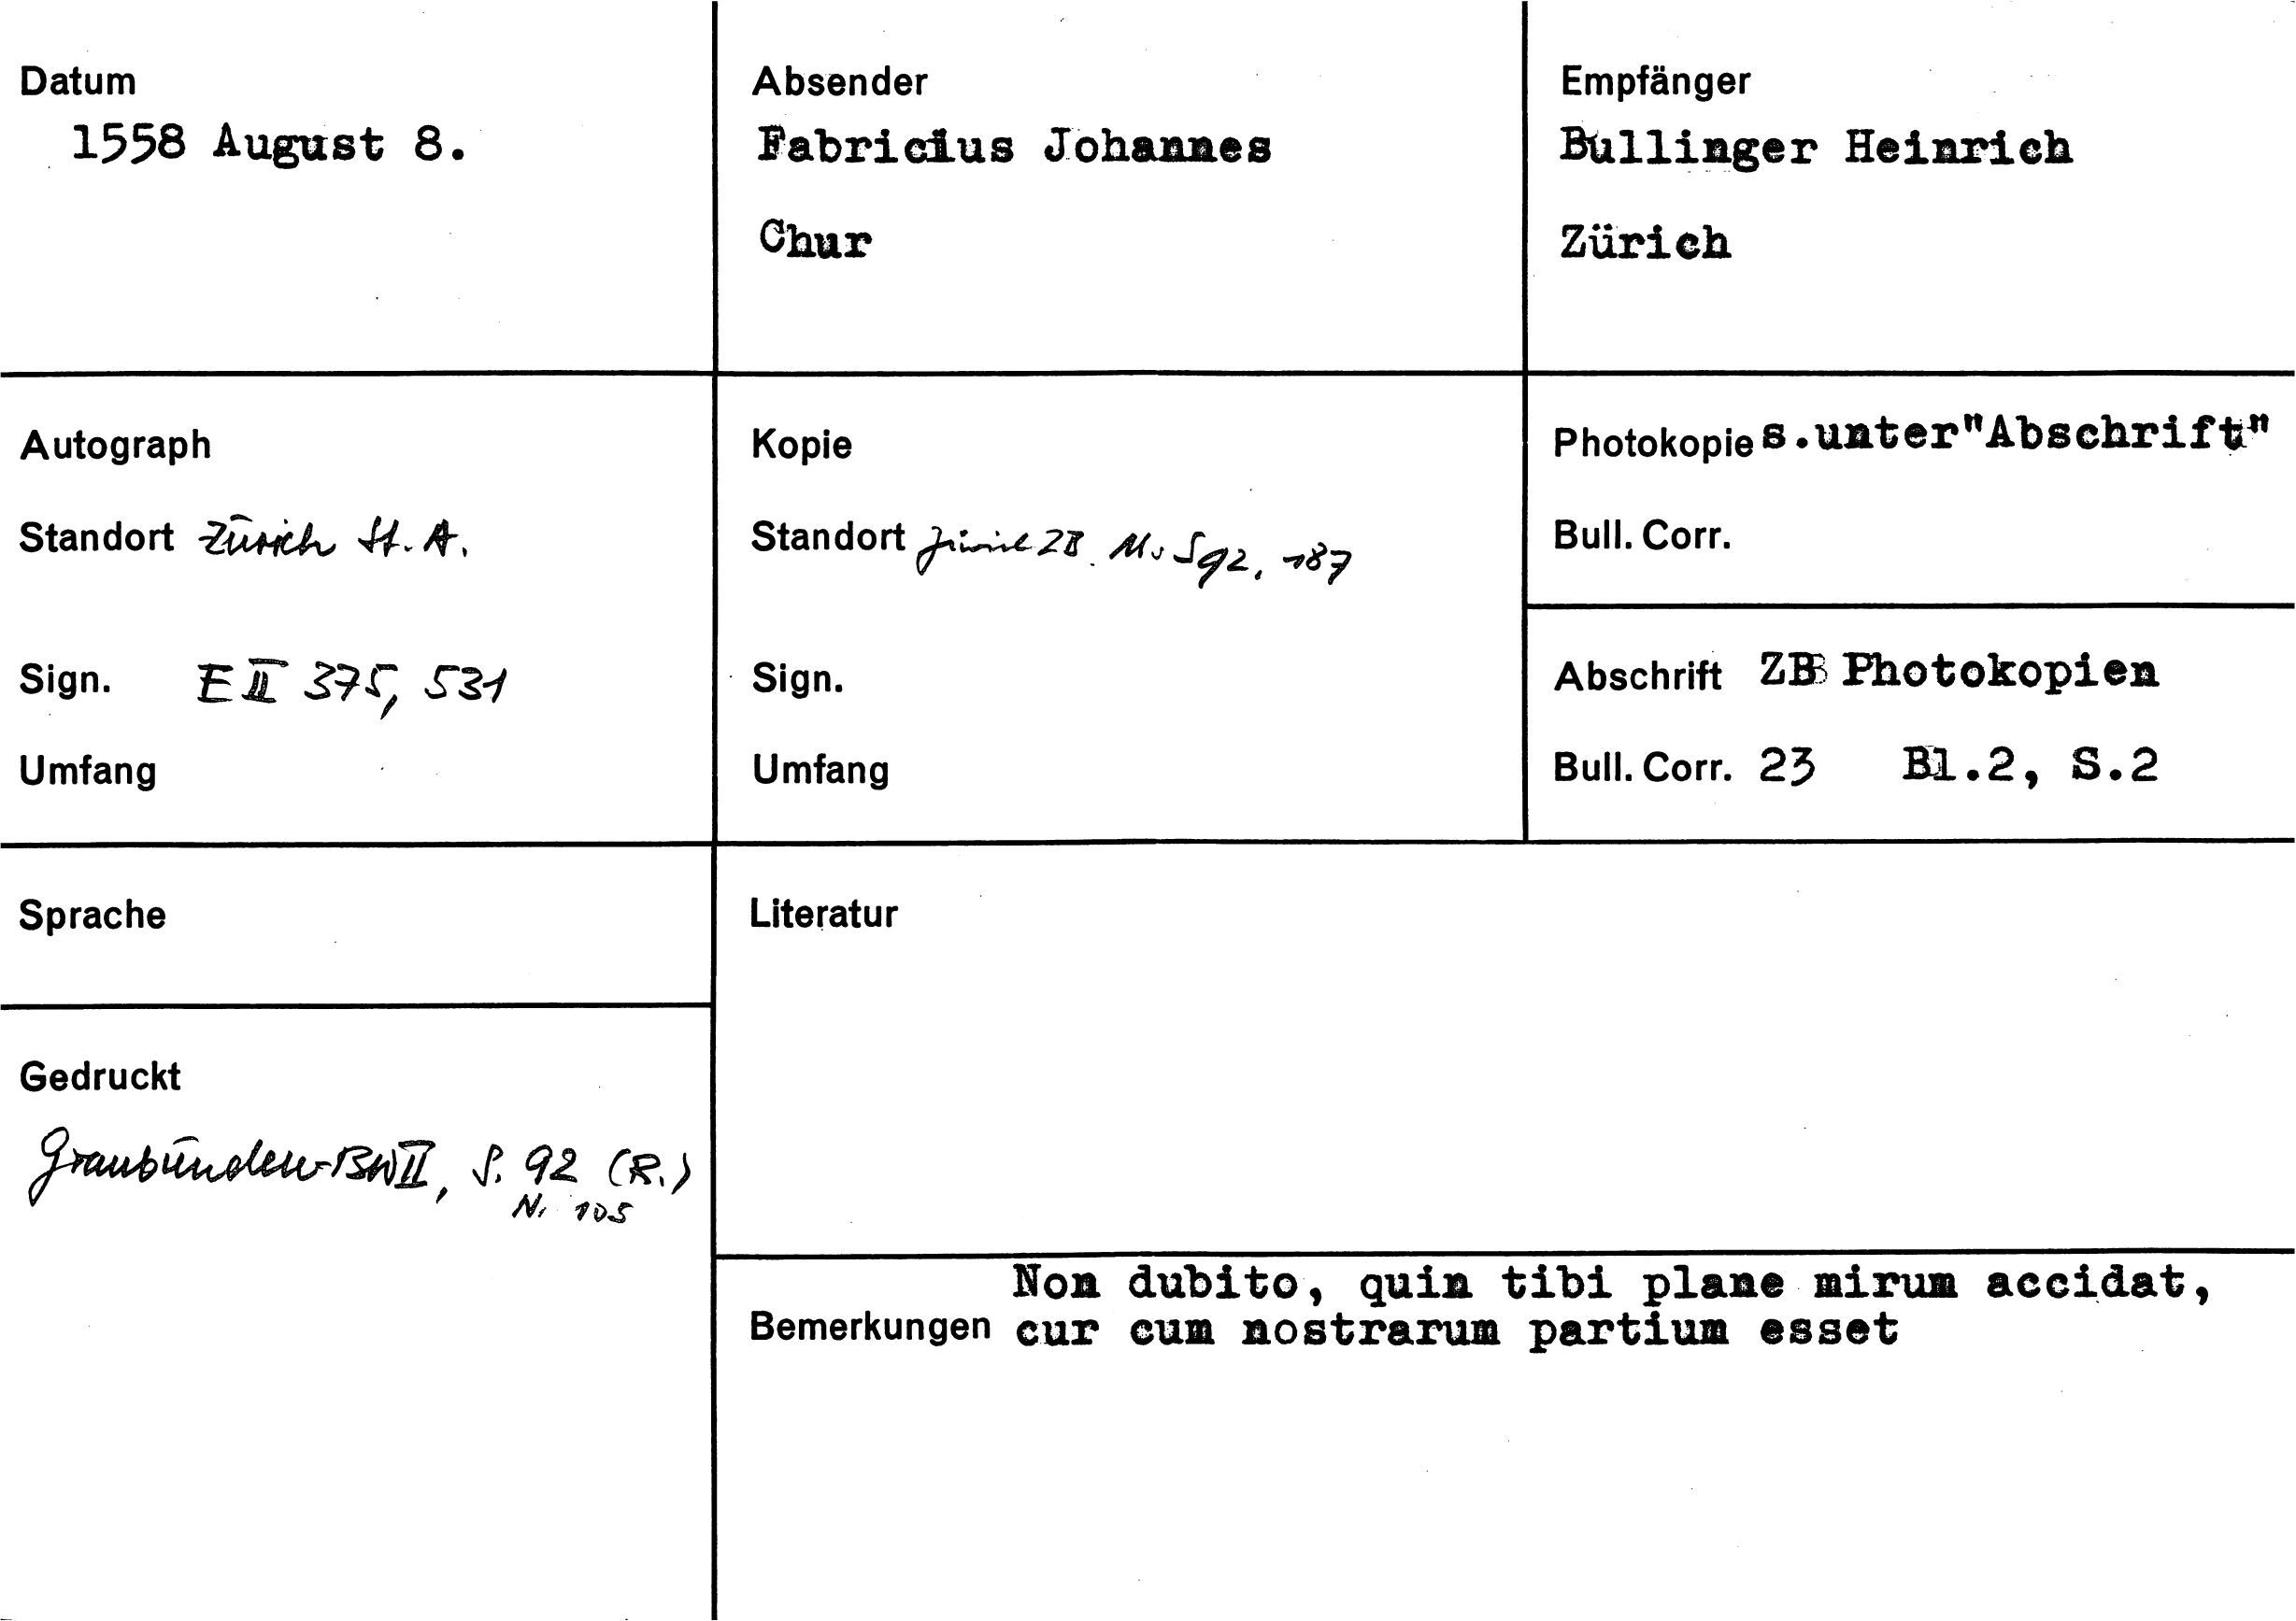 Datum
1558 August 8.
Absender
Fabricius Johannes
Chur
Empfänger
Bullinger Heinrich
Zürich
Autograph
Standort Zürich St. A.
Sign. E II 375, 531
Umfang
Kopie
Standort Zürich ZB. Ms S 92, 187
Sign.
Umfang
Photokopie s.unter"Abschrift"
Bull. Corr.
Abschrift ZB Photokopien
Bull. Corr. 23 Bl.2, S.2
Sprache
Literatur
Gedruckt
Graubünden-BW II, S. 92 (R.)
N. 105
Non dubito, quin tibi plane mirum accidat,
Bemerkungen cur cum nostrarum partium esset